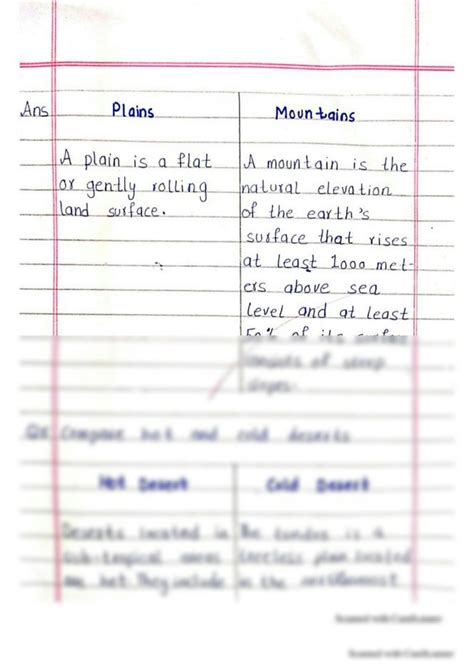 Ans
Plains
Mountains
A plain is a flat
or gently rolling
land surface.
A mountain is the
natural elevation
of the earth's
surface that rises
at least 1000 met-
ers above sea
level and at least
50% of its surface
consists of steep
slopes.
Compare hot and cold deserts
Hot Desert
Cold Desert
Deserts located in
sub-tropical areas
are hot. They include
is a
located
in the
Scanned with CamScanner
Scanned with CamScanner